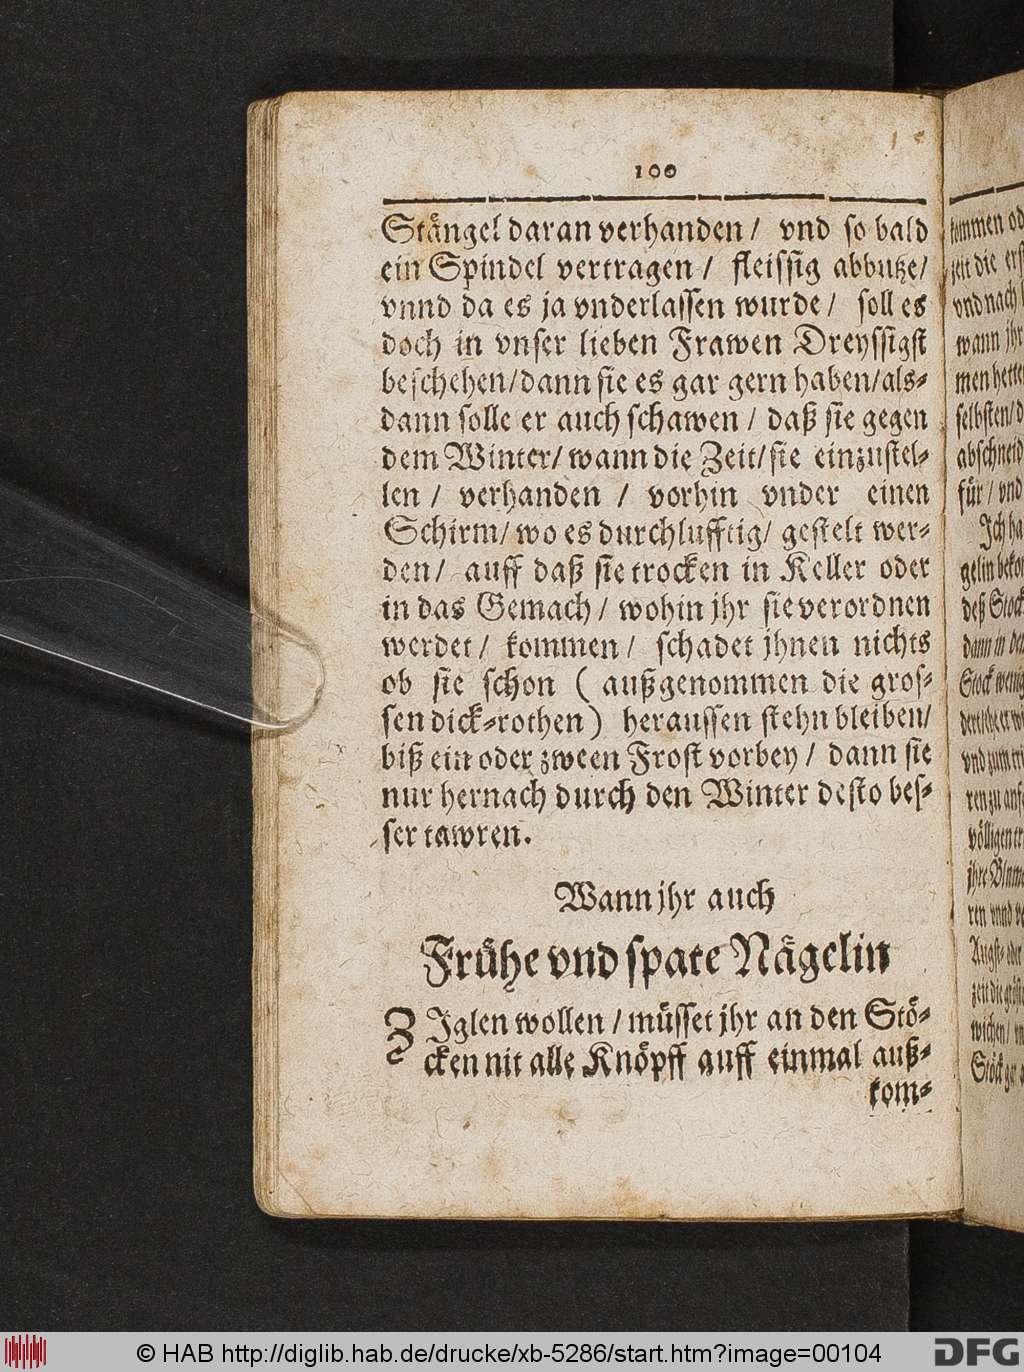 100
Stängel daran verhanden / vnd so bald
ein Spindel vertragen / fleissig abbutze/
vnnd da es ja vnderlassen wurde / soll es
doch in vnser lieben Frawen Dreyssigst
beschehen/dann sie es gar gern haben/als-
dann solle er auch schawen / daß sie gegen
dem Winter/ wann die Zeit/sie einzustel-
len / verhanden / vorhin vnder einen
Schirm/ wo es durchlufftig/ gestelt wer-
den/ auff daß sie trocken in Keller oder
in das Gemach / wohin jhr sie verordnen
werdet / kommen / schadet jhnen nichts
ob sie schon ( außgenommen die gros-
sen dick-rothen) heraussen stehn bleiben/
biß ein oder zween Frost vorbey / dann sie
nur hernach durch den Winter desto bes-
ser tawren.
Wann jhr auch
Frühe vnd spate Nägelin
ZIglen wollen / müsset jhr an den Stö-
cken nit alle Knöpff auff einmal auß-
kom-
kommen
zeit die
vnd nach
wann jhr
selbsten/
abschneid
für / vnd
Ich ha
deß Stock
dann in
Stock wenig
vnd zum
jhre Blum
ren vnnd
Augst- oder
wichen/
Stöck gar
© HAB http://diglib.hab.de/drucke/xb-5286/start.htm?image=00104
DFG